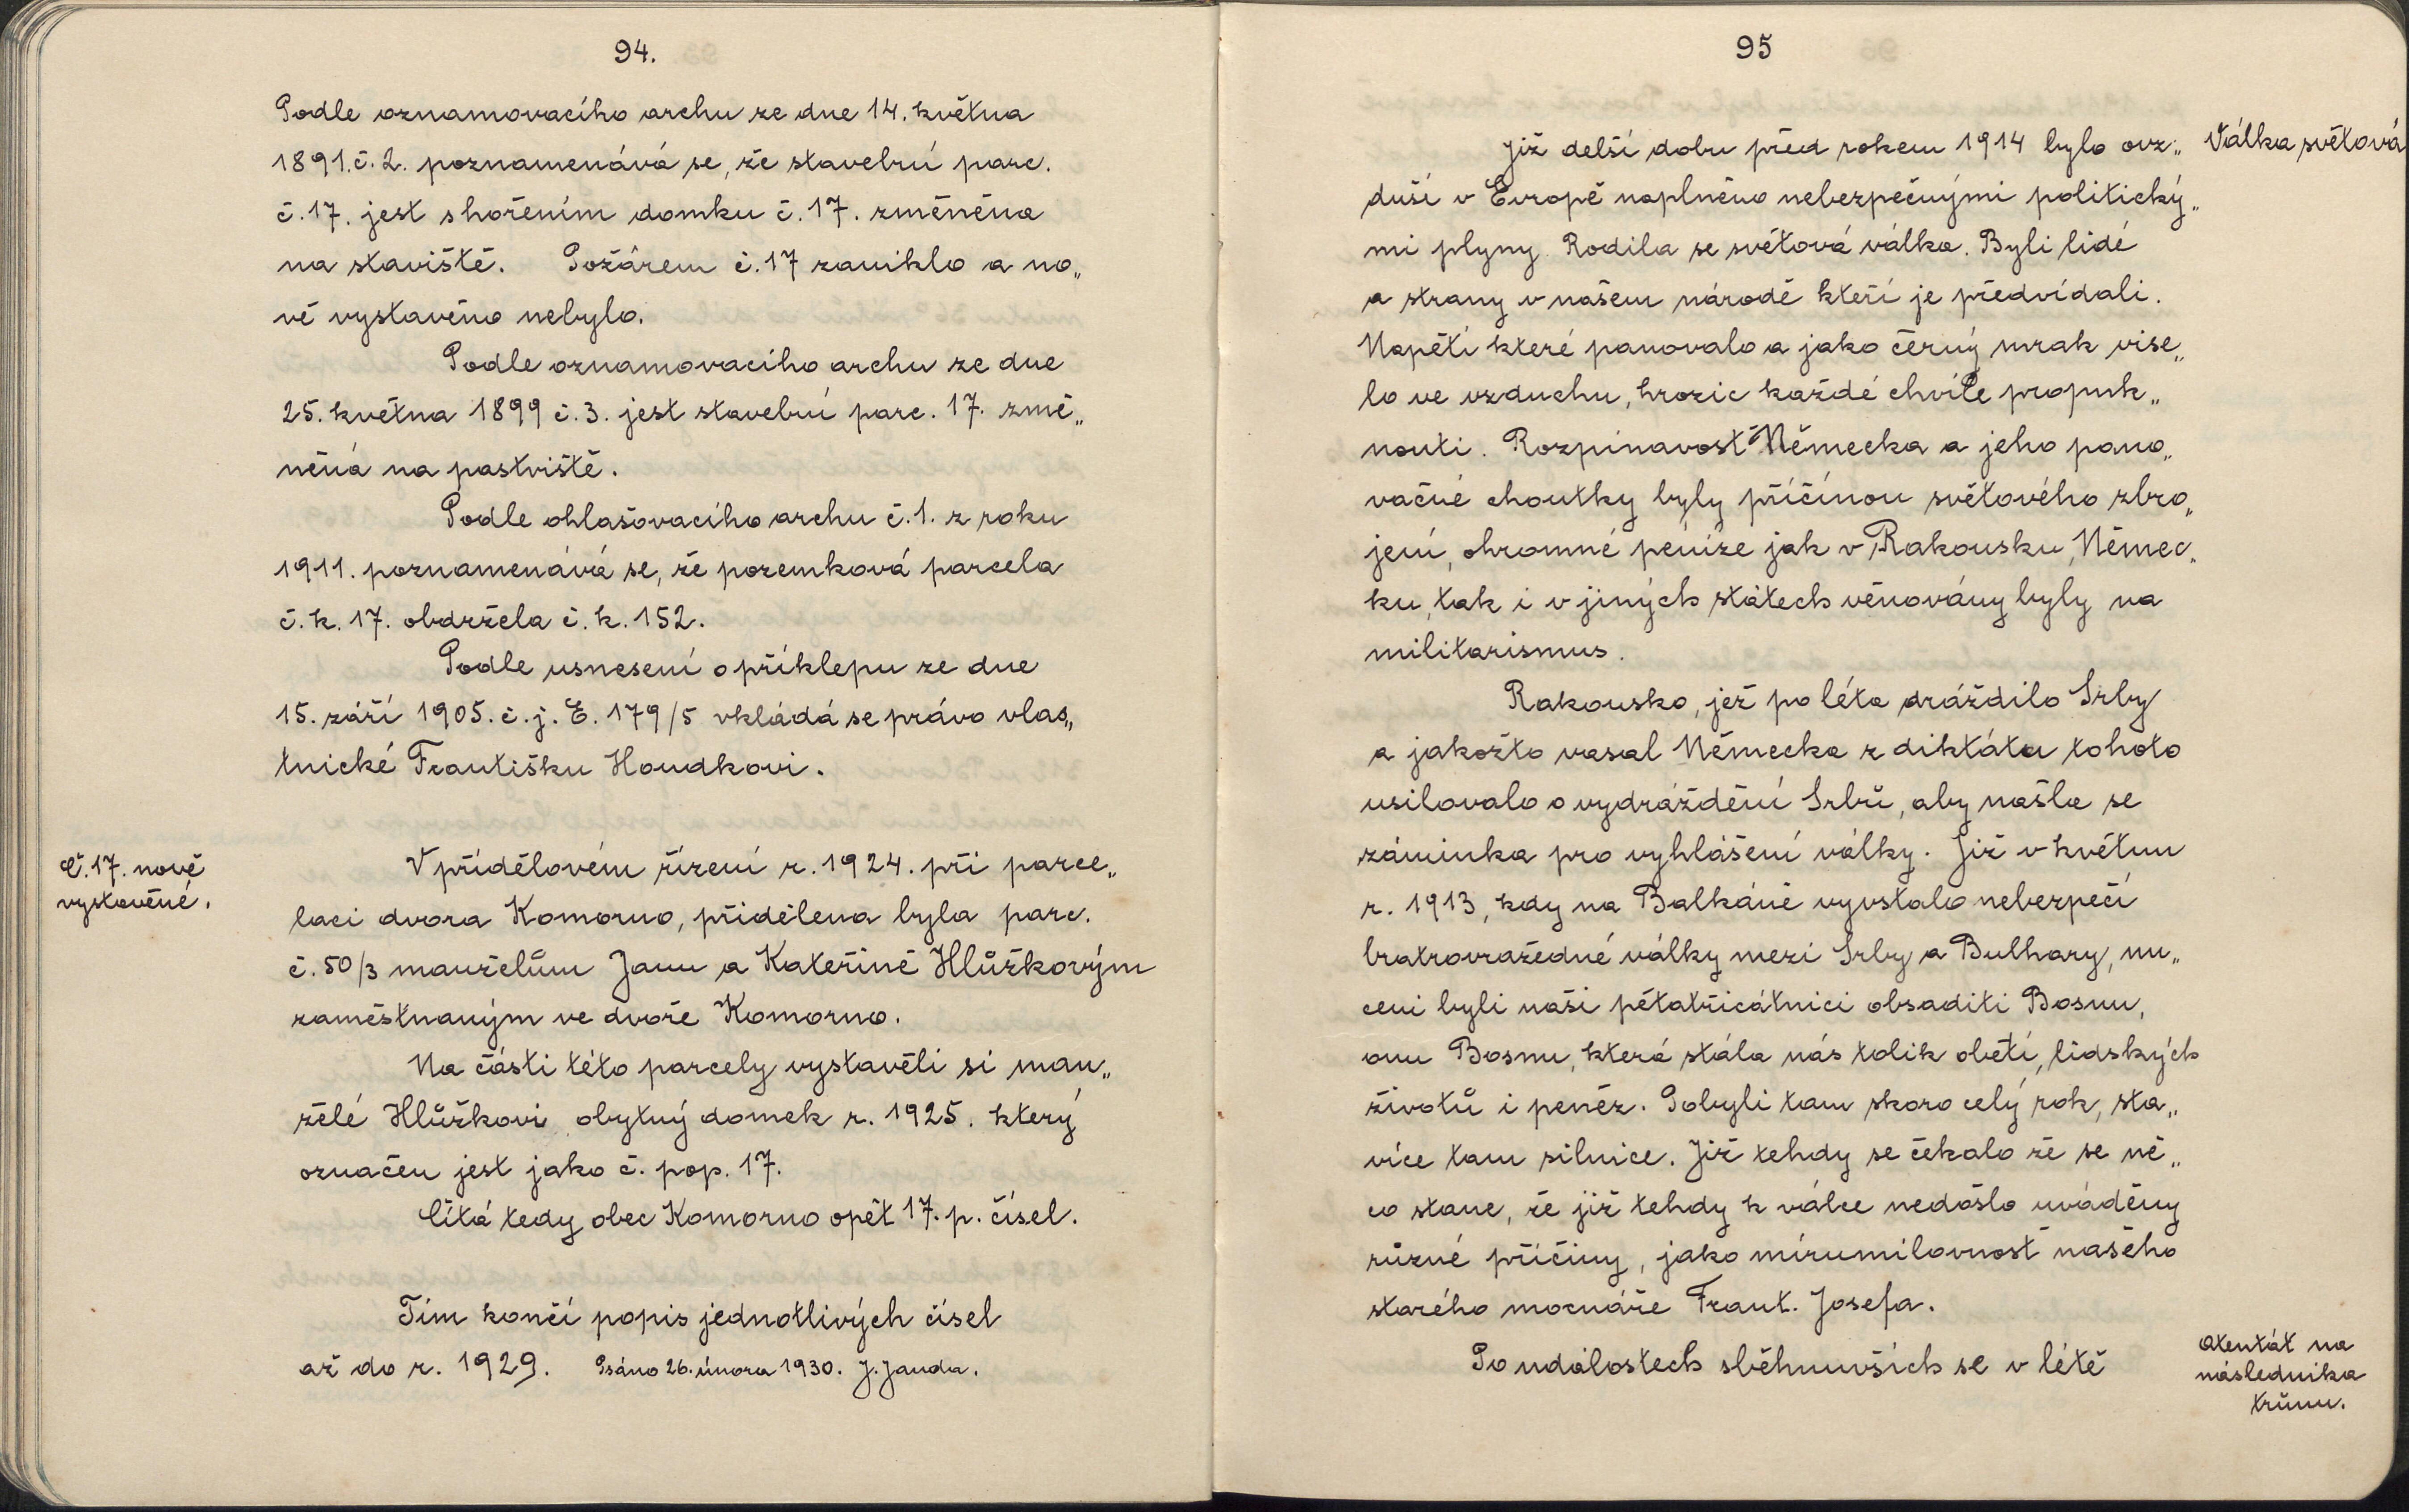 94.
Podle oznamovacího archu ze dne 14. května
1891. č. 2. poznamenává se, že stavební parc.
č. 17. jest shořením domku č. 17. změněna
na staviště. Požárem č. 17 zaniklo a no„
vě vystavěno nebylo.
Podle oznamovacího archu ze dne
25. května 1899 č. 3. jest stavební parc. 17. změ„
něná na pastviště.
Podle ohlašovacího archu č. 1. z roku
1911. poznamenává se, že pozemková parcela
č. k. 17. obdržela č. k. 152.
Podle usnesení o příklepu ze dne
15. září 1905. č. j. E. 179/5 vkládá se právo vlas„
tnické Františku Houdkovi.
Č. 17. nově
vystavěné.
V přídělovém řízení r. 1924. při parce„
laci dvora Komorno, přidělena byla parc.
č. 50/3 manželům Janu a Kateřině Hlůžkovým
zaměstnaným ve dvoře Komorno.
Na části této parcely vystavěli si man„
želé Hlůžkovi obytný domek r. 1925. který
označen jest jako č. pop. 17.
Čítá tedy obec Komorno opět 17. p. čísel.
Tím končí popis jednotlivých čísel
až do r. 1929. Psáno 26. února 1930. J. Janda.
95
Válka světová
Již delší dobu před rokem 1914 bylo ovz„
duší v Evropě naplněno nebezpečnými politický„
mi plyny. Rodila se světová válka. Byli lidé
a strany v našem národě kteří je předvídali.
Napětí které panovalo a jako černý mrak vise„
lo ve vzduchu, hrozic každé chvíle propuk„
nouti. Rozpínavost Německa a jeho pano„
vačné choutky byly příčinou světového zbro„
jení, ohromné peníze jak v Rakousku, Němec„
ku, tak i v jiných státech věnovány byly na
militarismus.
Rakousko, jež po léta dráždilo Srby
a jakožto vasal Německa z diktátu tohoto
usilovalo o vydráždění Srbů, aby našla se
záminka pro vyhlášení války. Již v květnu
r. 1913, kdy na Balkáně vyvstalo nebezpečí
bratrovražedné války mezi Srby a Bulhary, nu„
ceni byli naši pětatřicátníci obsaditi Bosnu,
onu Bosnu, která stála nás tolik obětí, lidských
životů i peněz. Pobyli tam skoro celý rok, sta„
více tam silnice. Již tehdy se čekalo že se ně„
co stane, že již tehdy k válce nedošlo uváděny
různé příčiny, jako mírumilovnost našeho
starého mocnáře Frant. Josefa.
Po událostech sběhnuvších se v létě
Atentát na
následníka
trůnu.